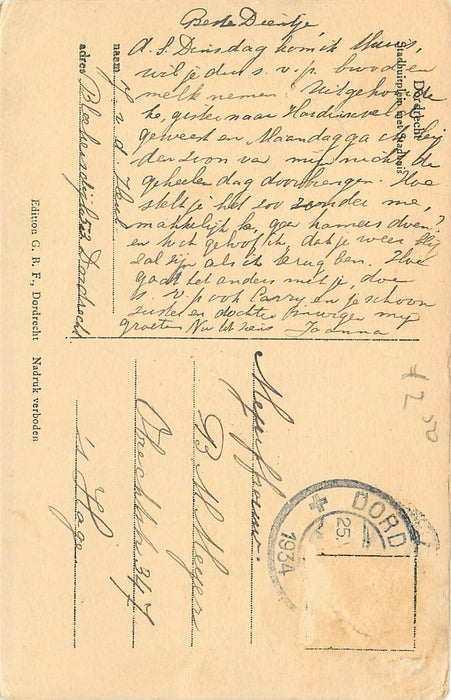 Beste Dientje
A.S. Dinsdag kom ik thuis,
wil je dus s.v.p. brood en
melk nemen. Uitgehoorde
ke, gister naar Hardinxveld
geweest en Maandag ga ik bij
den zoon van mijn nicht de
geheelen dag doorbrengen. Hoe
stelt je het zoo zonder me,
makkelijk hè, geen kamers doen?
en toch gehoopt, dat je weer blij
zal zijn als ik terug ben. Hoe
gaat het anders met je, doe
s.v.p. ook Carry en je schoon
zuster en dochter mijn
groeten. Nu tot ziens Joanna
Dordrecht
Stadhuisplein met Stadhuis
naam v. d.
adres Dordrecht
Edition G. B. F., Dordrecht Nadruk verboden
Mejuffrouw
B. Meyer
347
's Hage
DORD
25
1934
+ 2.00